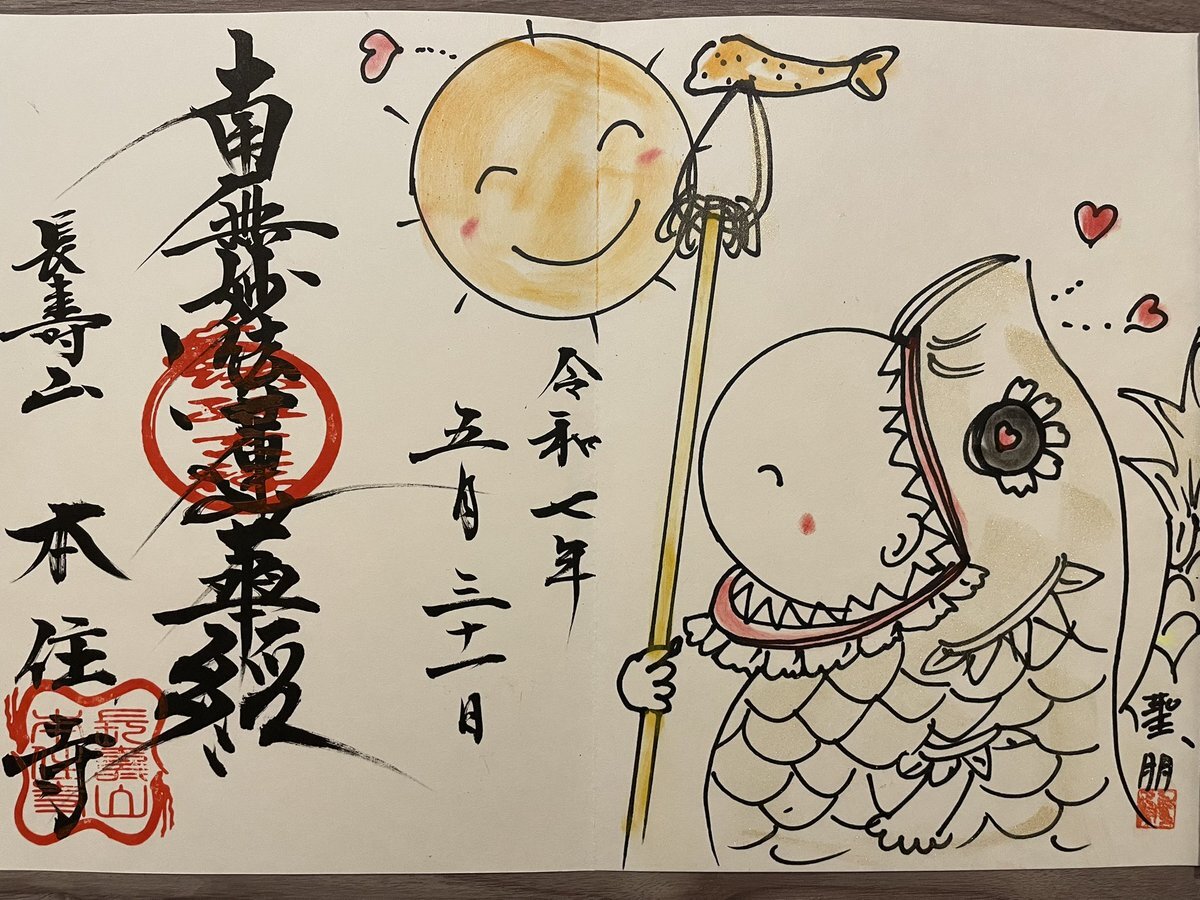 聖朋
令和七年
五月三十一日
南無妙法蓮華經
長壽山 本住寺
長壽山
本住寺